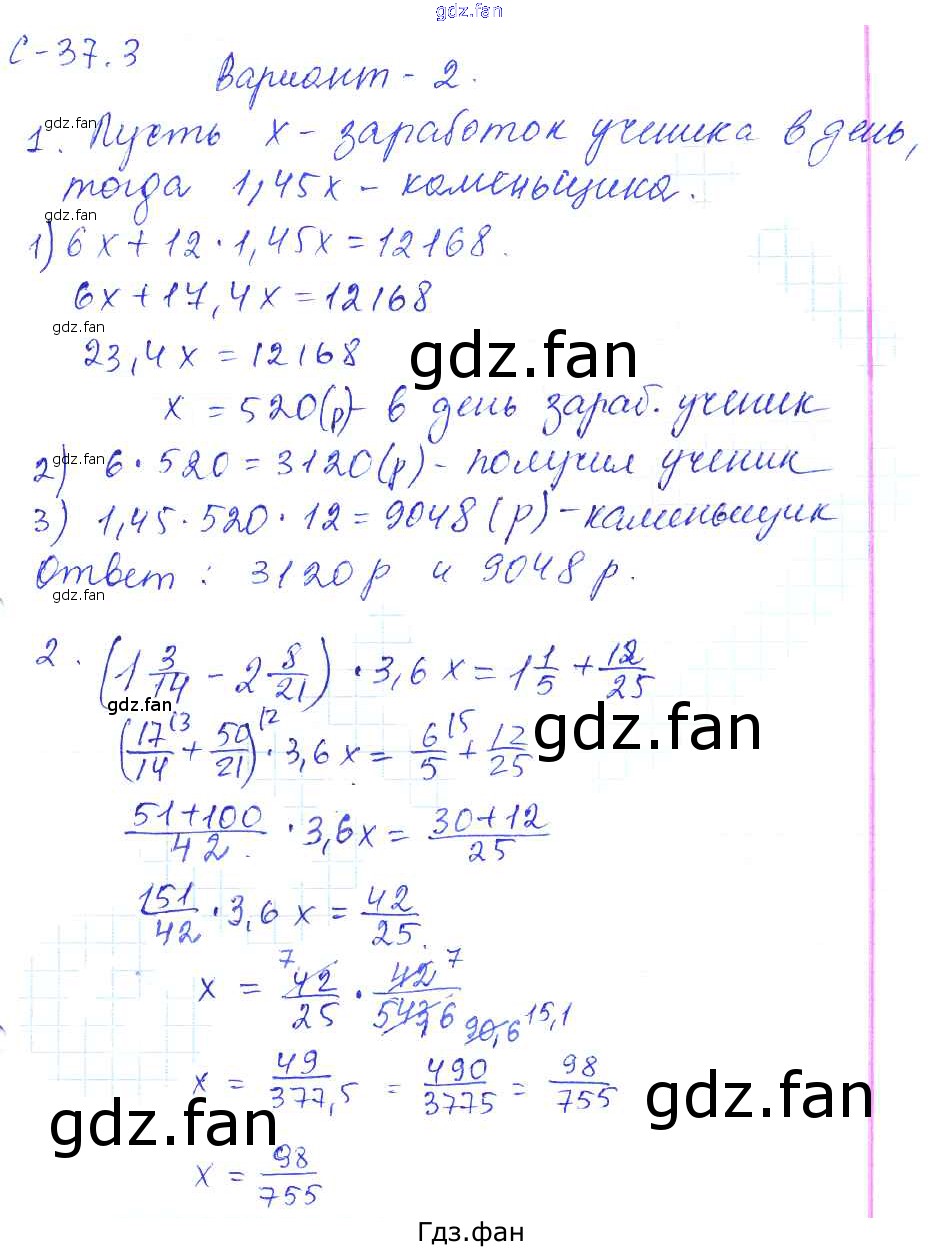 gdz.fan
С-37.3
Вариант - 2.
gdz.fan
1. Пусть x - заработок ученика в день,
тогда 1,45x - каменьщика.
gdz.fan
1) 6x + 12 · 1,45x = 12168.
6x + 17,4x = 12168
gdz.fan
23,4x = 12168
gdz.fan
x = 520(р) - в день зараб. ученик
gdz.fan
2) 6 · 520 = 3120(р) - получил ученик
3) 1,45 · 520 · 12 = 9048 (р) - каменьщик
gdz.fan
Ответ: 3120 р и 9048 р.
gdz.fan
2. (1 3/14 - 2 8/21) · 3,6 x = 1 1/5 + 12/25
gdz.fan
gdz.fan
(17/14 (3 + 50/21) (2 · 3,6 x = 6/5 (5 + 12/25
(51+100)/42 · 3,6x = (30+12)/25
151/42 · 3,6 x = 42/25.
x = 42/25 7 · 42/543,6 7 90,6 15,1
x = 49/377,5 = 490/3775 = 98/755
gdz.fan
gdz.fan
x = 98/755
Гдз.фан